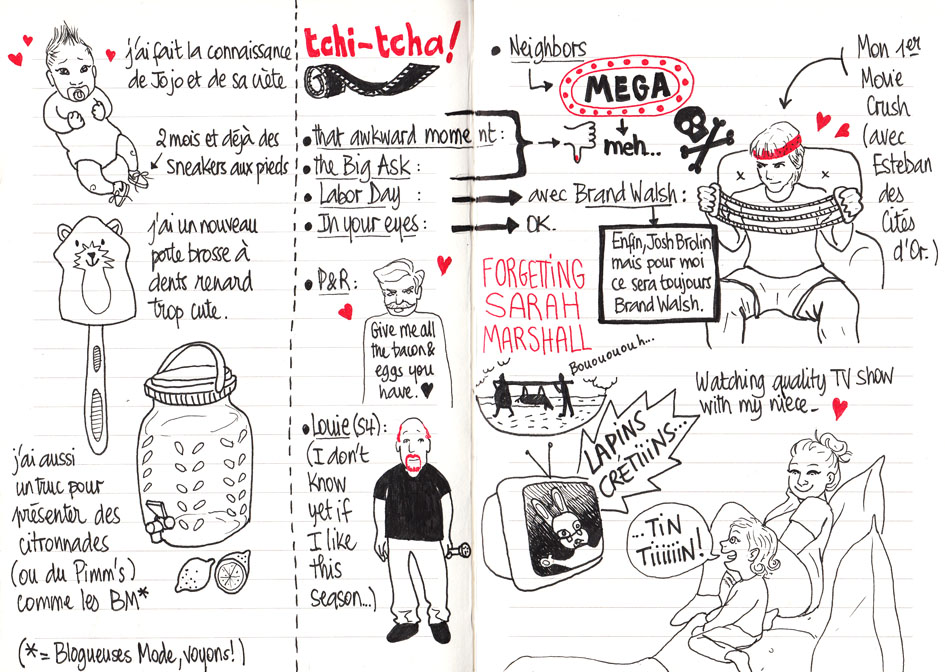 j'ai fait la connaissance
de Jojo et de sa crête
2 mois et déjà des
sneakers aux pieds
j'ai un nouveau
porte brosse à
dents renard
trop cute.
j'ai aussi
un truc pour
présenter des
citronnades
(ou du Pimm's)
comme les BM*
(*= Blogueuses Mode, voyons!)
tchi-tcha!
• that awkward moment :
• the Big Ask :
• Labor Day :
• In your eyes :
• P&R :
Give me all
the bacon &
eggs you
have.
• Louie (S4):
(I don't
know
yet if
I like
this
season...)
• Neighbors
MEGA
meh...
avec Brand Walsh :
OK.
Enfin, Josh Brolin
mais pour moi
ce sera toujours
Brand Walsh.
Mon 1er
Movie
Crush
(avec
Esteban
des
Cités
d'Or.)
FORGETTING
SARAH
MARSHALL
Bouououou h...
Watching quality TV show
with my niece_
LAPINS
CRÉTIIINS...
...TIN
Tiiiiiin!